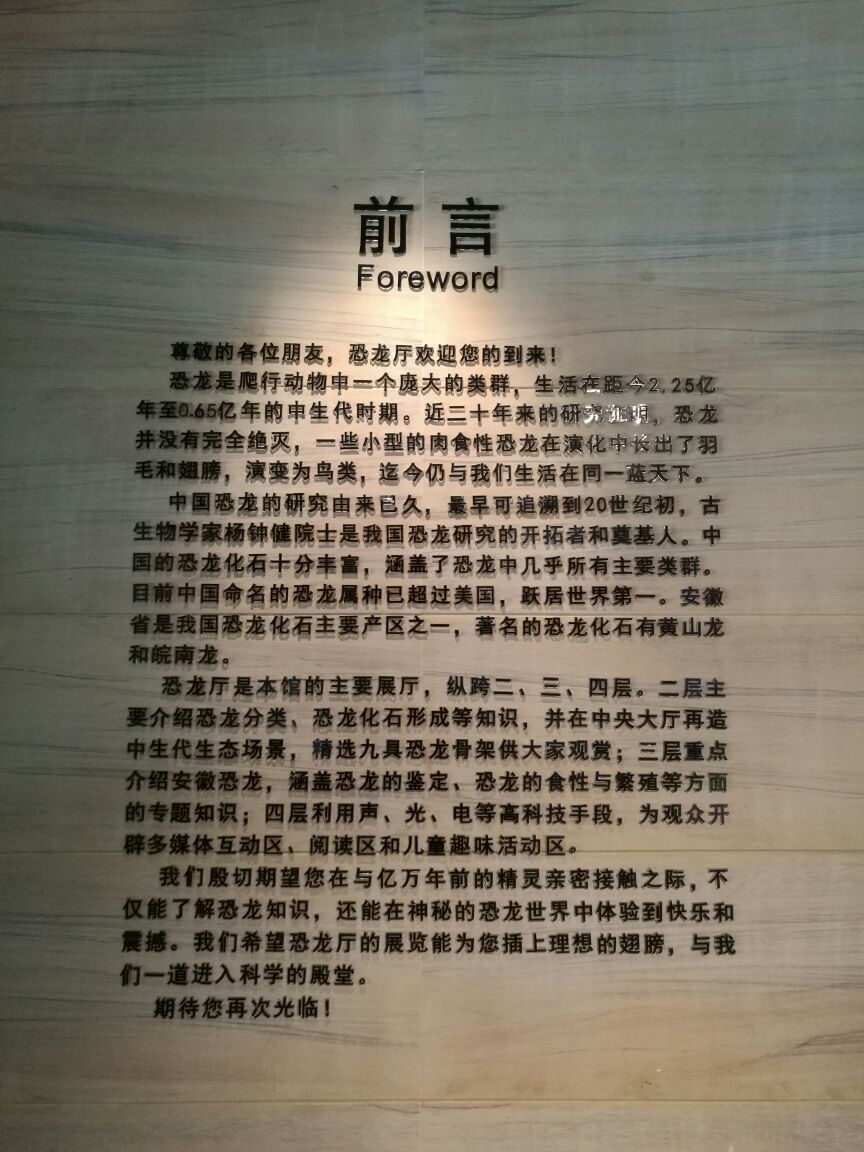 前言
Foreword
尊敬的各位朋友，恐龙厅欢迎您的到来！
恐龙是爬行动物中一个庞大的类群，生活在距今2.25亿
年至0.65亿年的中生代时期。近二十年来的研究证明，恐龙
并没有完全绝灭，一些小型的肉食性恐龙在演化中长出了羽
毛和翅膀，演变为鸟类，迄今仍与我们生活在同一蓝天下。
中国恐龙的研究由来已久，最早可追溯到20世纪初，古
生物学家杨钟健院士是我国恐龙研究的开拓者和奠基人。中
国的恐龙化石十分丰富，涵盖了恐龙中几乎所有主要类群。
目前中国命名的恐龙属种已超过美国，跃居世界第一。安徽
省是我国恐龙化石主要产区之一，著名的恐龙化石有黄山龙
和皖南龙。
恐龙厅是本馆的主要展厅，纵跨二、三、四层。二层主
要介绍恐龙分类、恐龙化石形成等知识，并在中央大厅再造
中生代生态场景，精选九具恐龙骨架供大家观赏；三层重点
介绍安徽恐龙，涵盖恐龙的鉴定、恐龙的食性与繁殖等方面
的专题知识；四层利用声、光、电等高科技手段，为观众开
辟多媒体互动区、阅读区和儿童趣味活动区。
我们殷切期望您在与亿万年前的精灵亲密接触之际，不
仅能了解恐龙知识，还能在神秘的恐龙世界中体验到快乐和
震撼。我们希望恐龙厅的展览能为您插上理想的翅膀，与我
们一道进入科学的殿堂。
期待您再次光临！